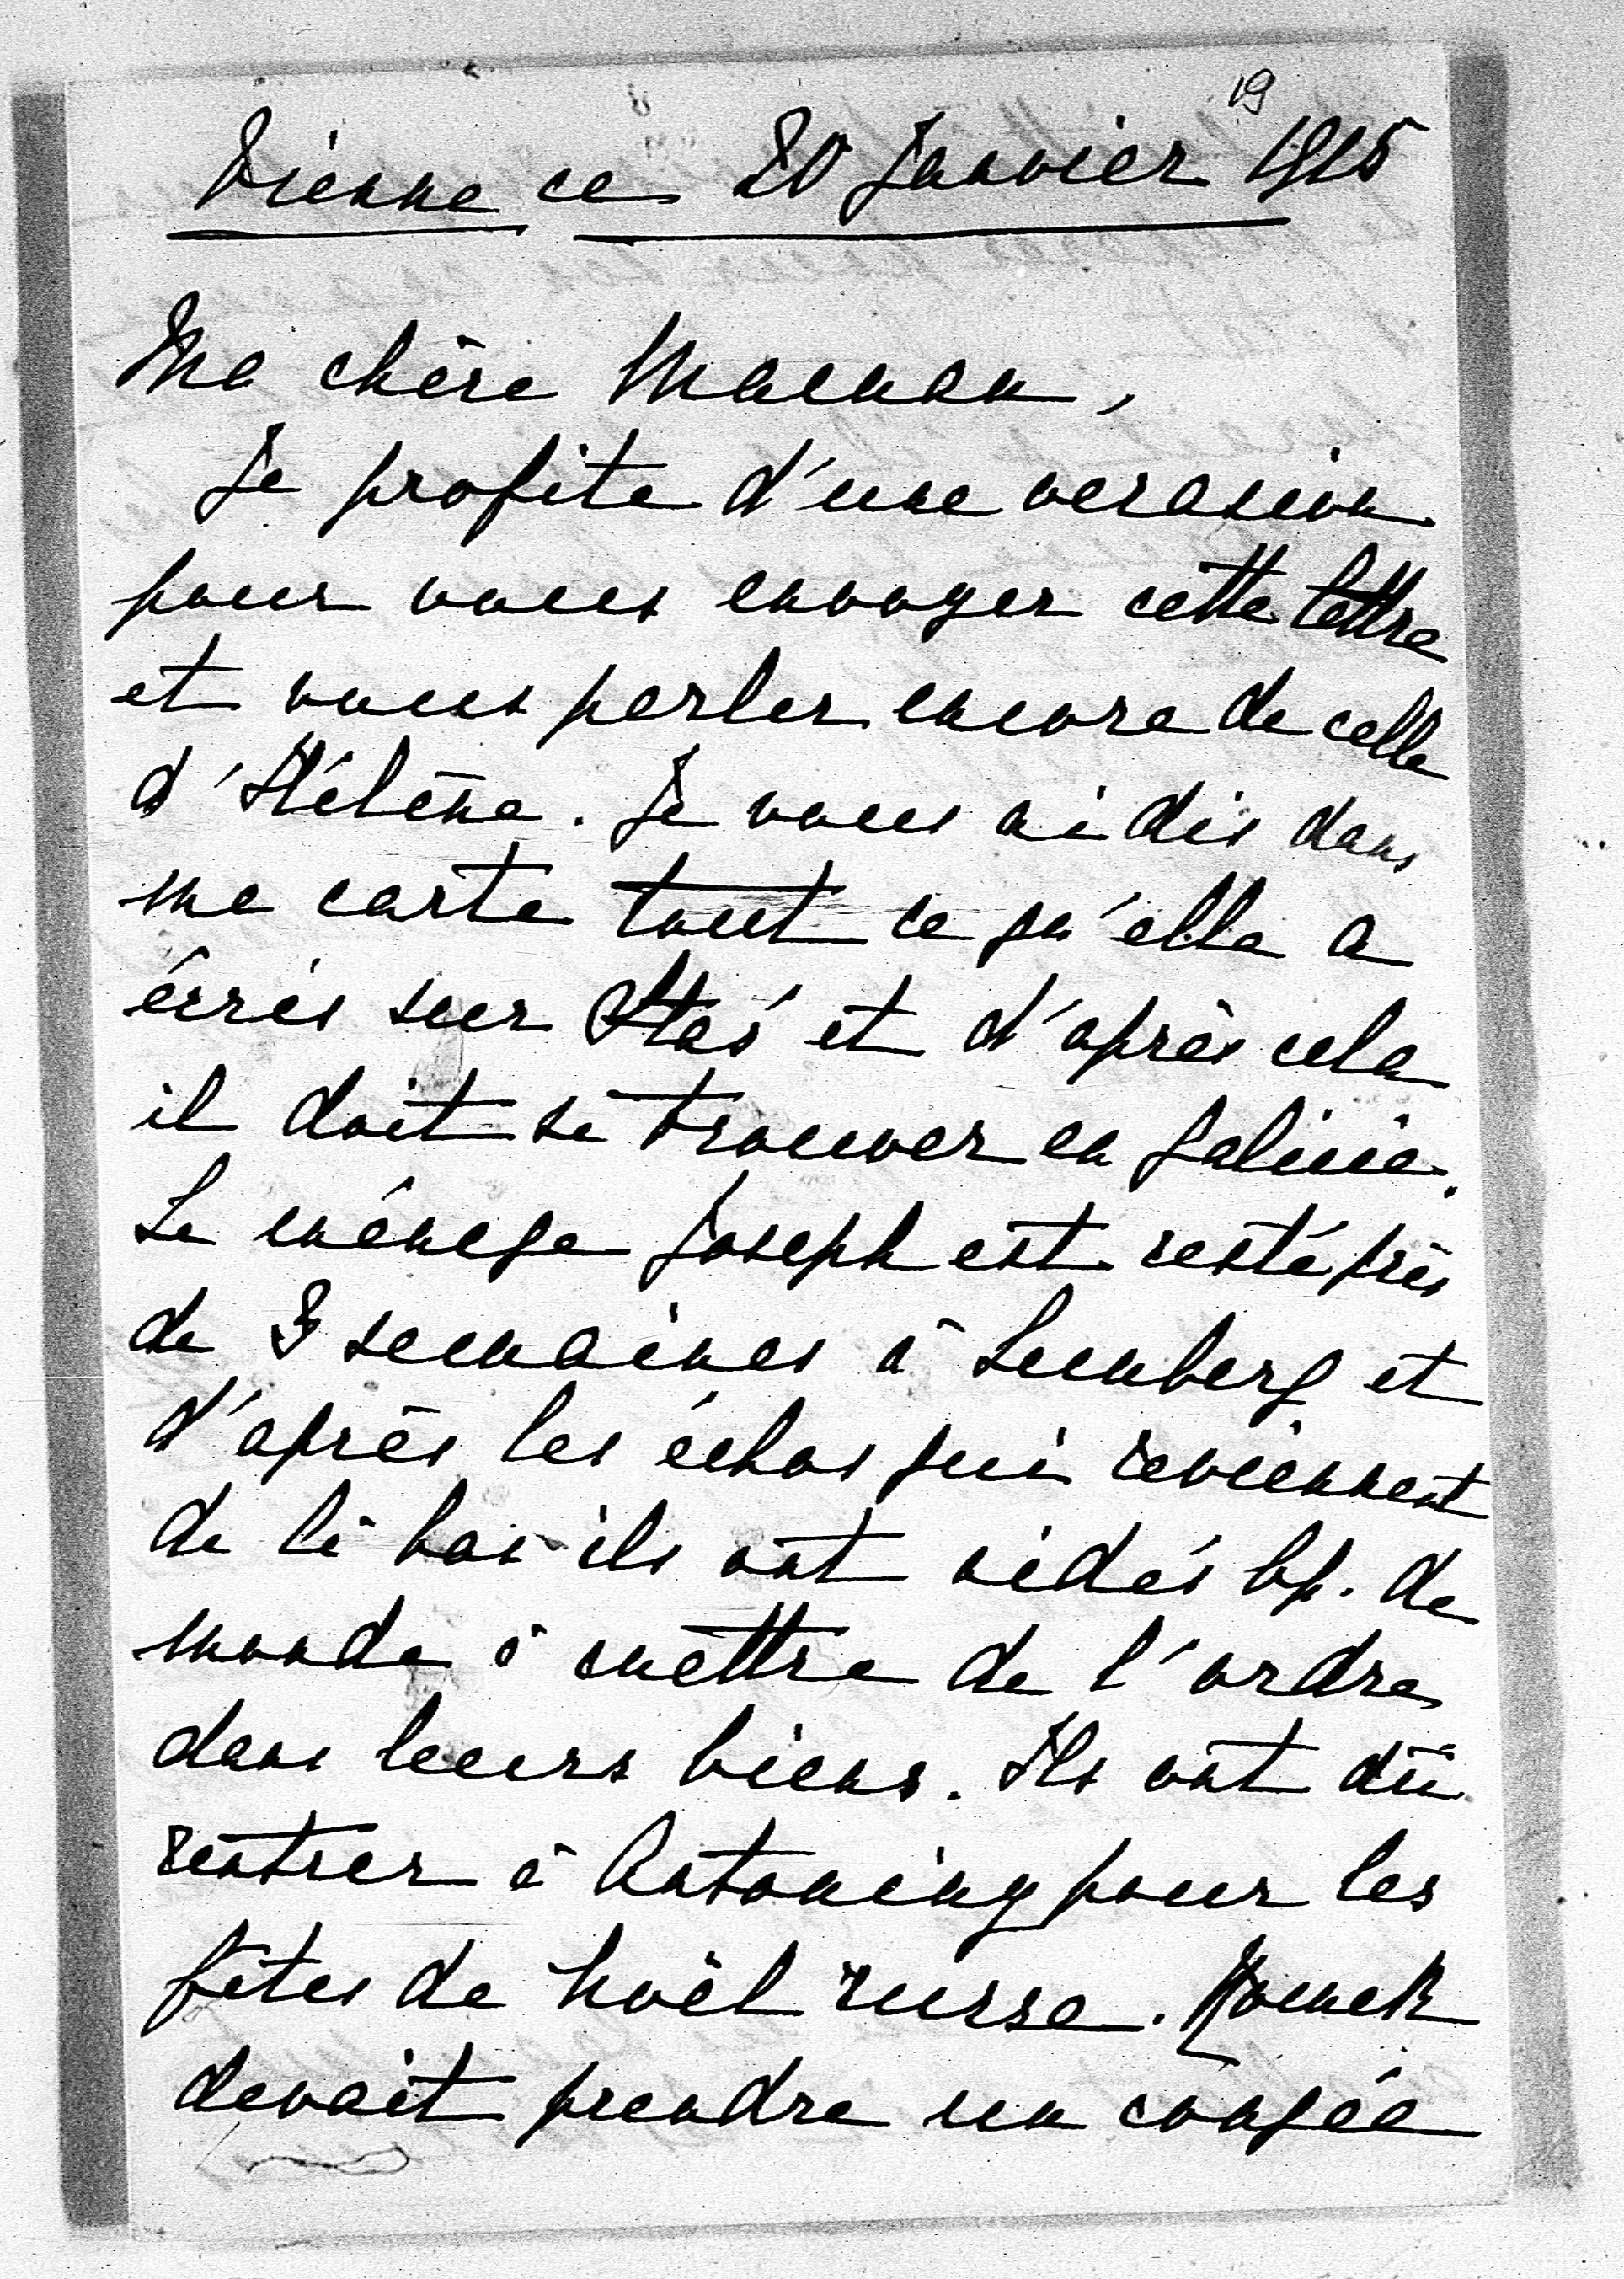 19
Vienne ce 20 Janvier 1915
Ma chère Maman,
Je profite d'une occasion
pour vous envoyer cette lettre
et vous parler encore de celle
d'Hélène. Je vous ai dis dans
ma carte tout ce qu'elle a
écris sur Staś et d'après cela
il doit se trouver en Galicie.
Le ménage Joseph est resté près
de 3 semaines à Lemberg et
d'après les échos qui reviennent
de là bas ils ont aidés bp. de
monde à mettre de l'ordre
dans leurs biens. Ils ont dû
rentrer à Antoniny pour les
fêtes de Noël russe. Romek
devait prendre un congée